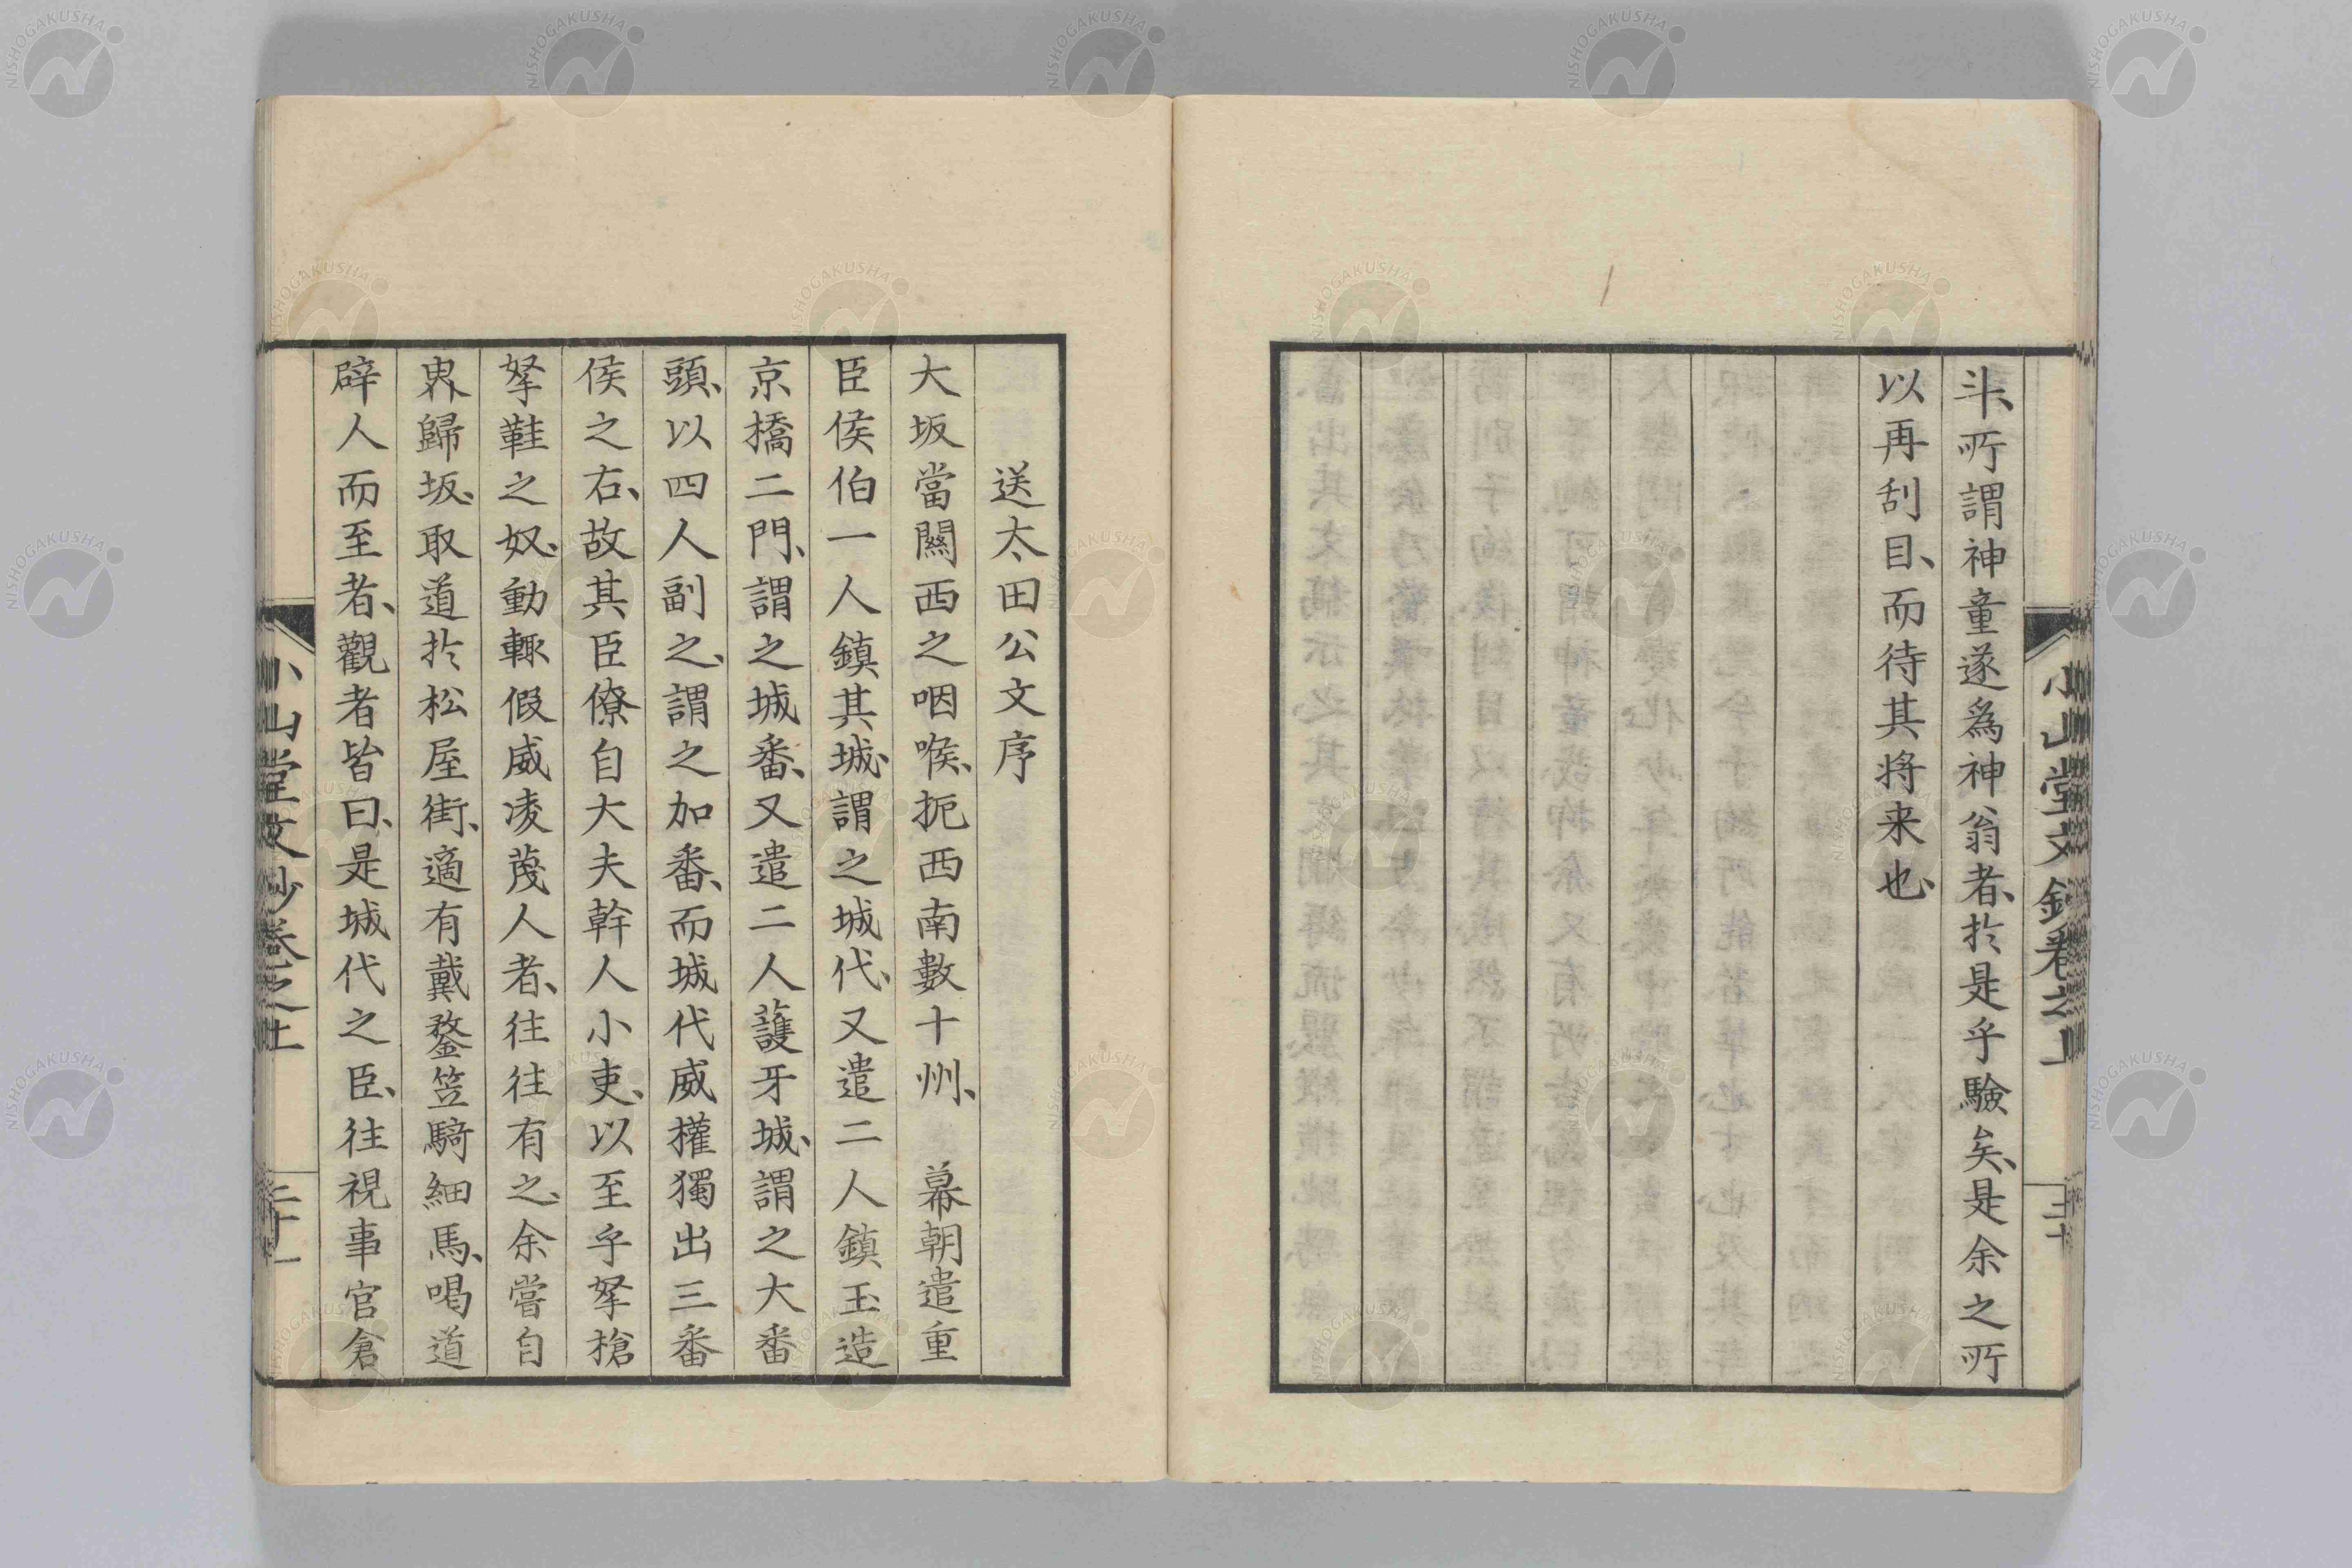 斗、所謂神童遂為神翁者、於是乎驗矣、是余之所
以再刮目、而待其将来也、
小山堂文鈔卷之上
三十
送太田公文序
大坂當關西之咽喉、扼西南數十州、　幕朝遣重
臣侯伯一人鎮其城、謂之城代、又遣二人鎮玉造
京橋二門、謂之城番、又遣二人護牙城、謂之大番
頭、以四人副之、謂之加番、而城代威權獨出三番
侯之右、故其臣僚自大夫幹人小吏、以至乎拏槍
拏鞋之奴、動輒假威凌蔑人者、往往有之、余嘗自
界歸坂、取道於松屋街、適有戴鍪笠騎細馬、喝道
辟人而至者、觀者皆曰、是城代之臣、往視事官倉
小山堂文鈔卷之上
三十一
NISHOGAKUSHA